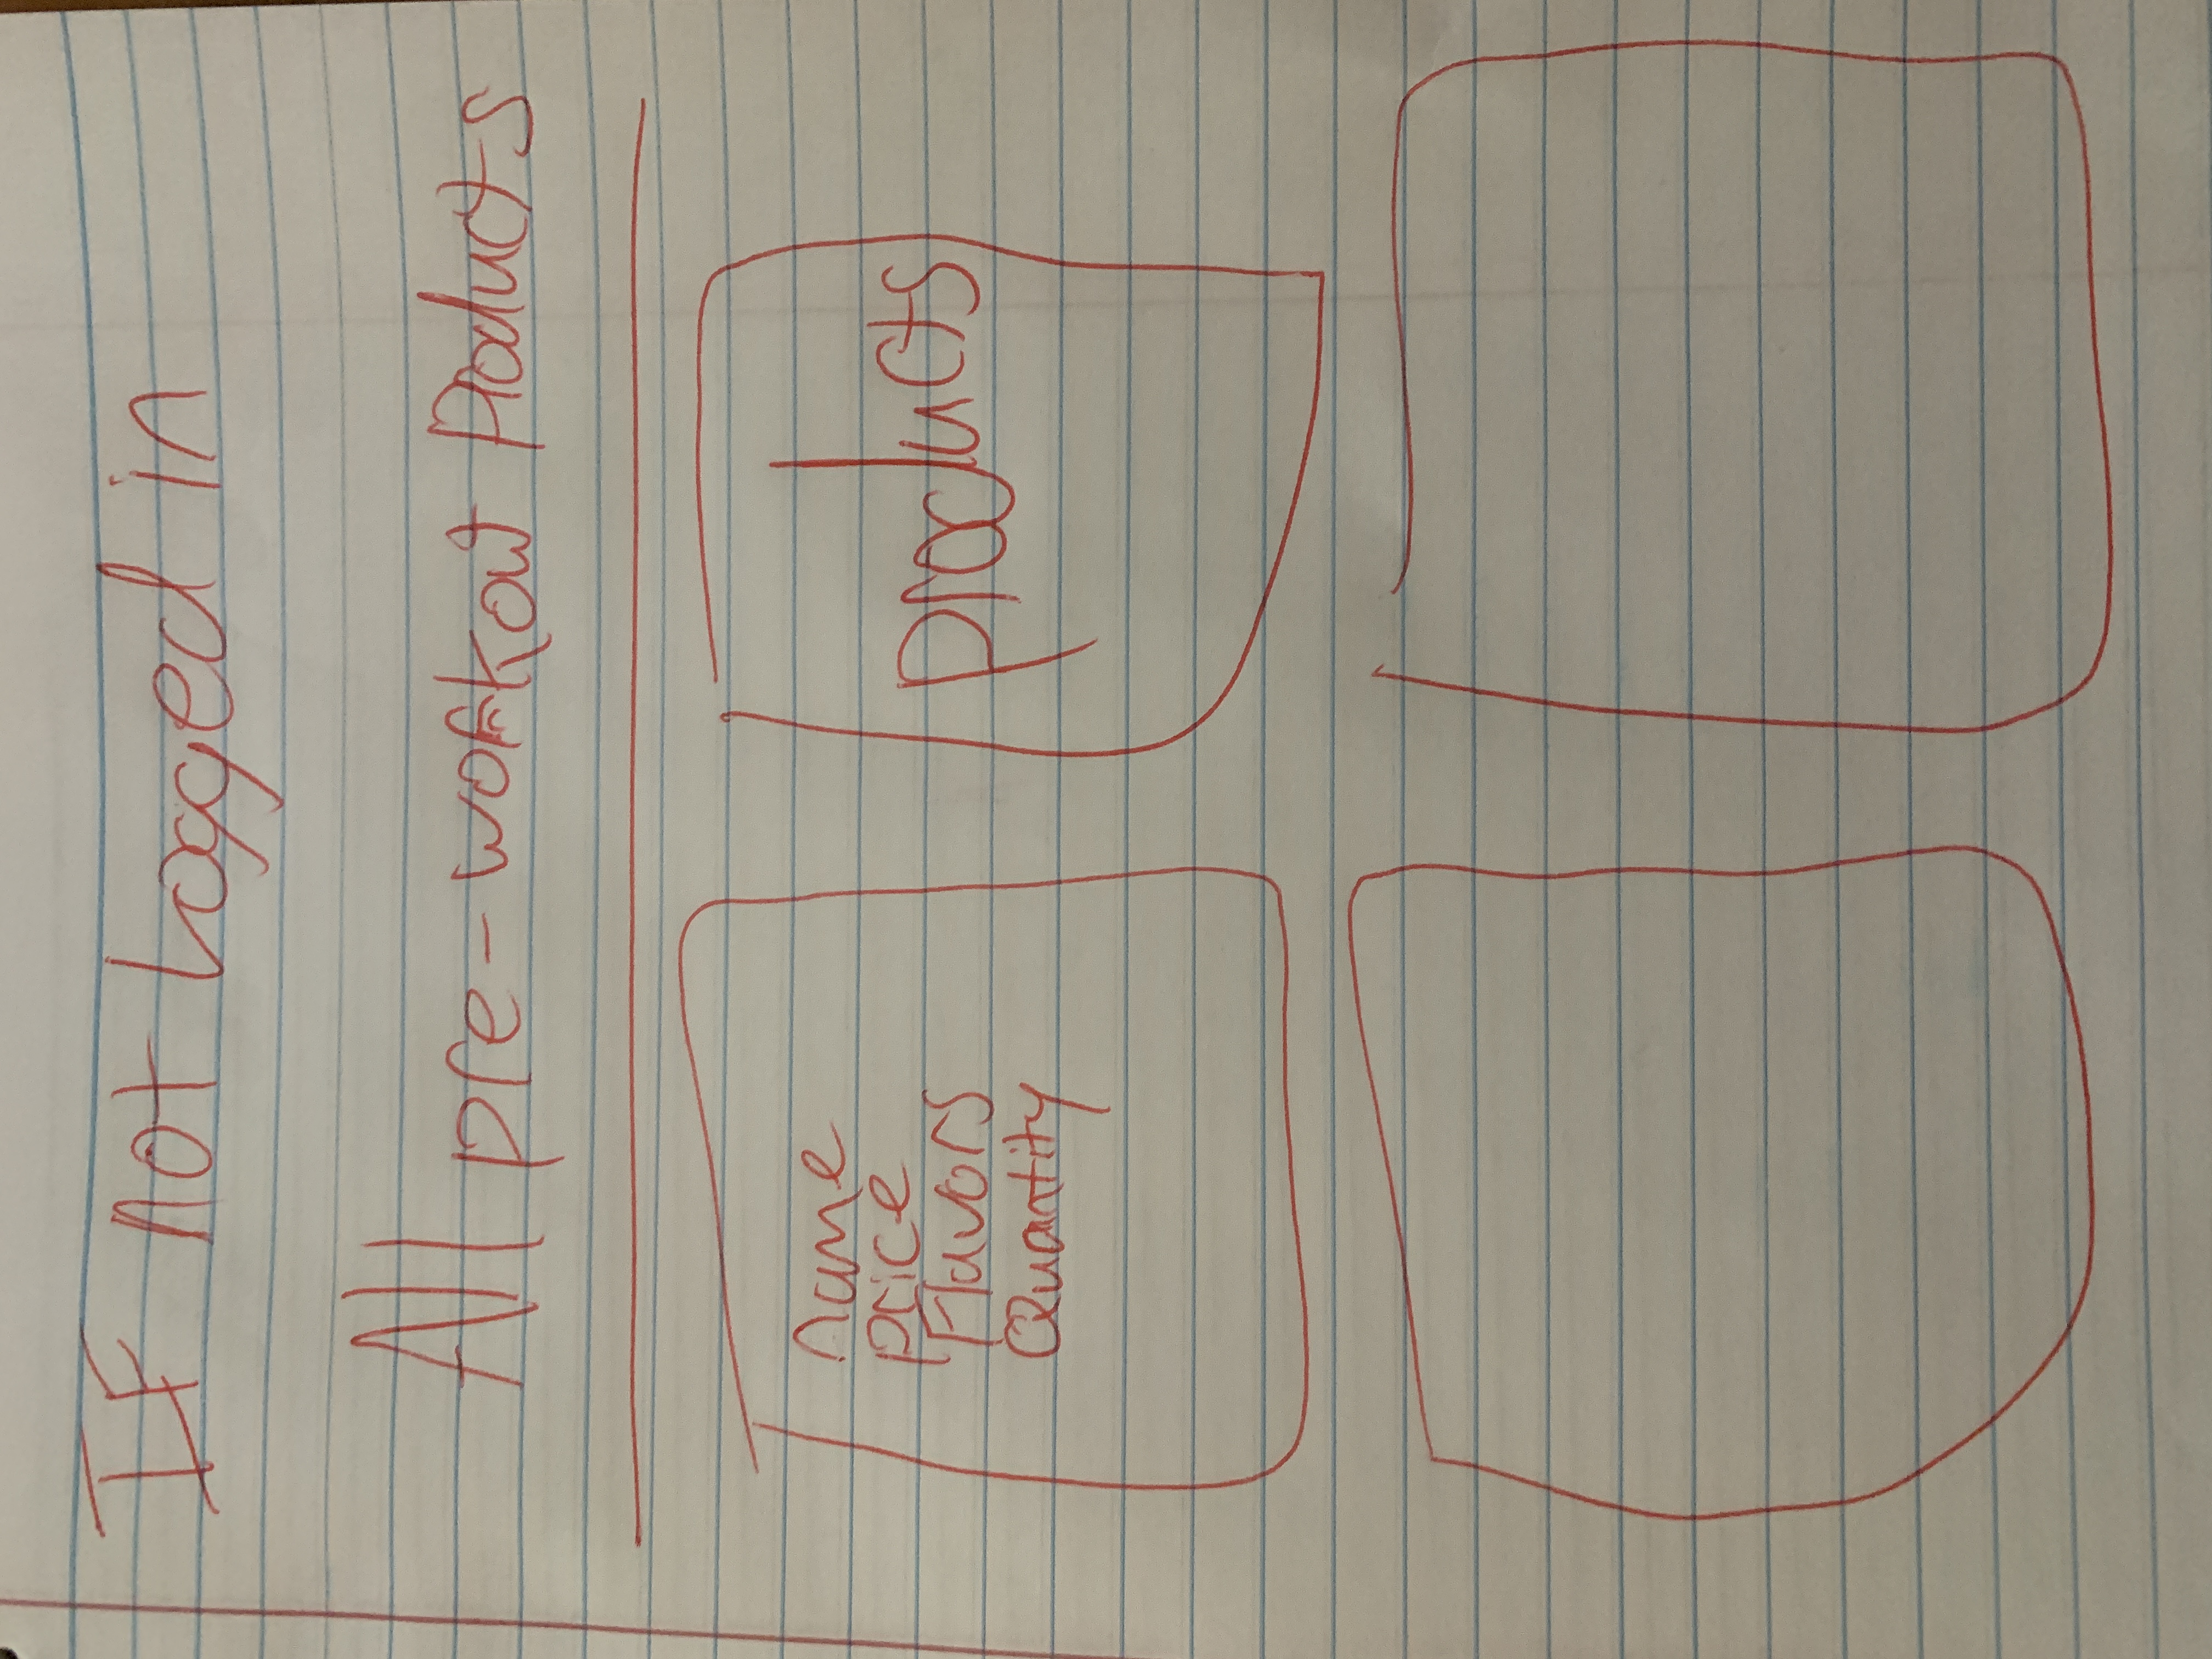 IF not Logged in
All pre-workout Products
name
price
Flavors
Quantity
products